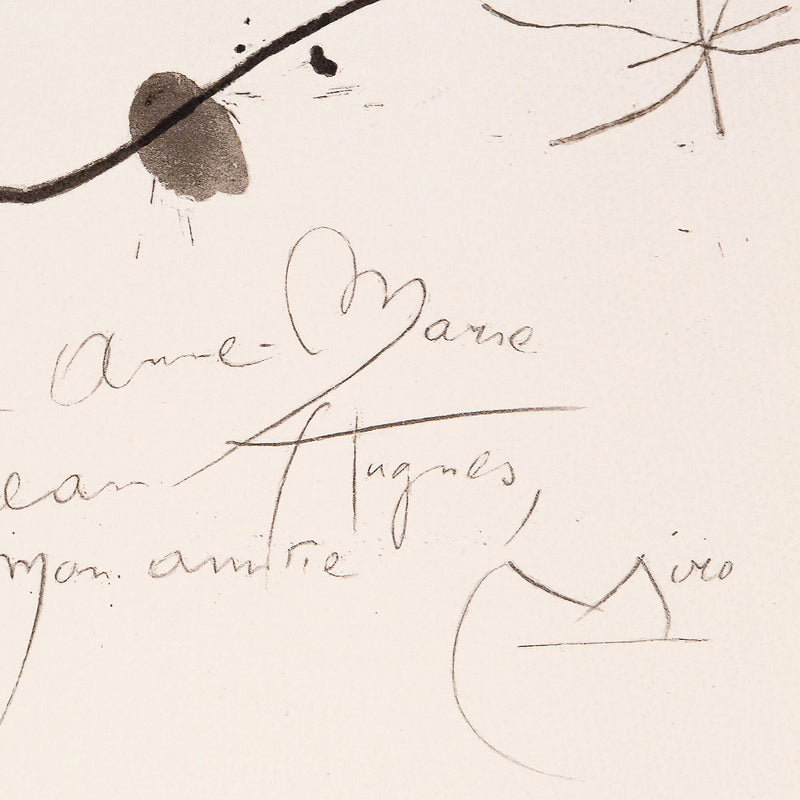 Anne-Marie
ean Hugues,
mon amitié
Miró